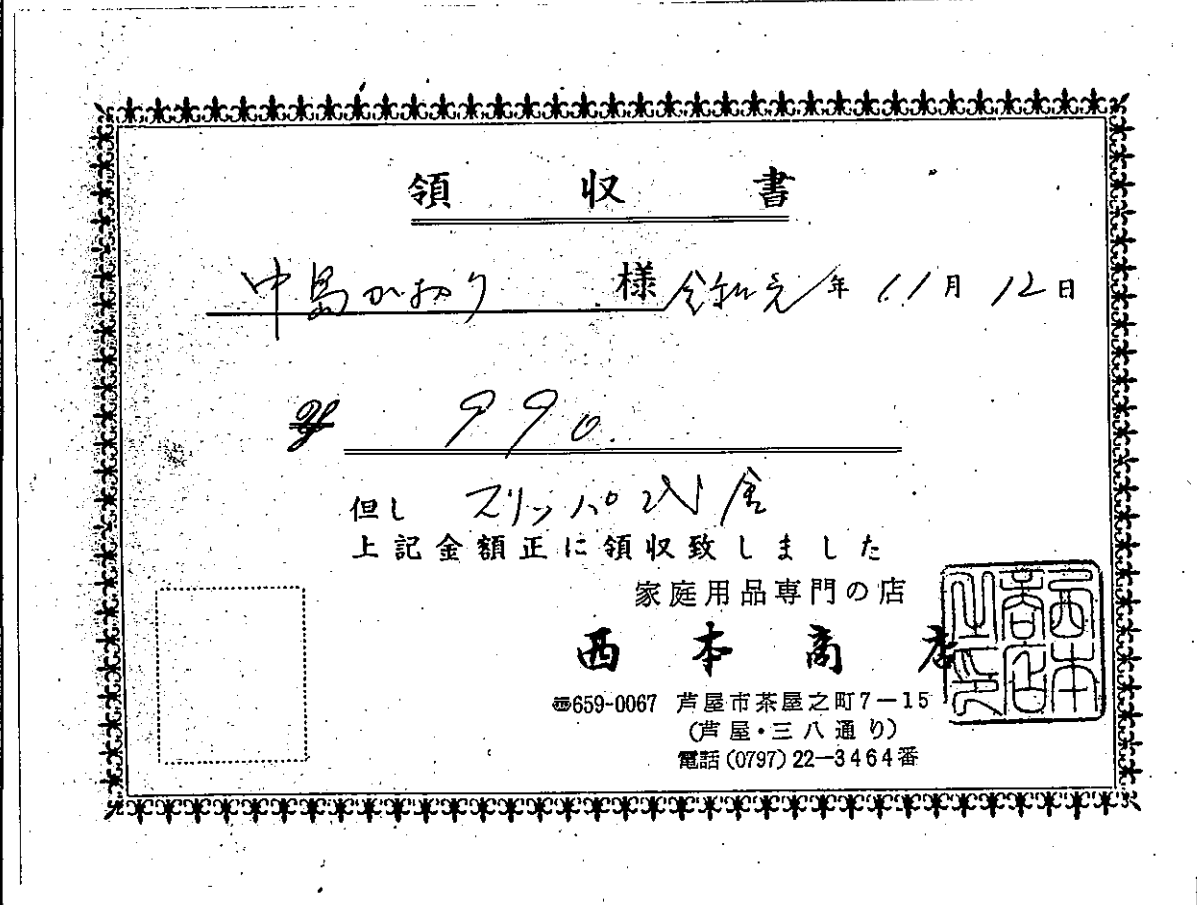 領収書
中島かおり 様 令和元年 11月 12日
¥ 990.
但し スリッパ代金
上記金額正に領収致しました
家庭用品専門の店
西本商店
〠659-0067 芦屋市茶屋之町7-15
(芦屋・三八通り)
電話(0797)22-3464番
西本商店之印